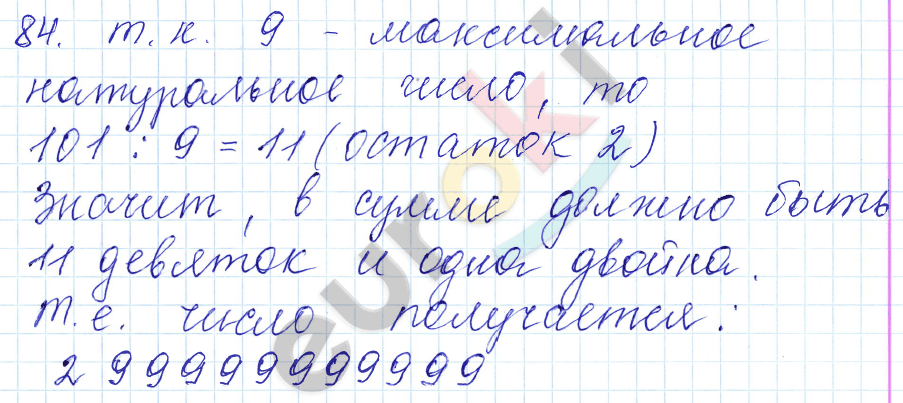 84. т.к. 9 - максимальное
натуральное число, то
101 : 9 = 11 (остаток 2)
Значит, в сумме должно быть
11 девяток и одна двойна.
т.е. число получается:
2 99999999999
euroki